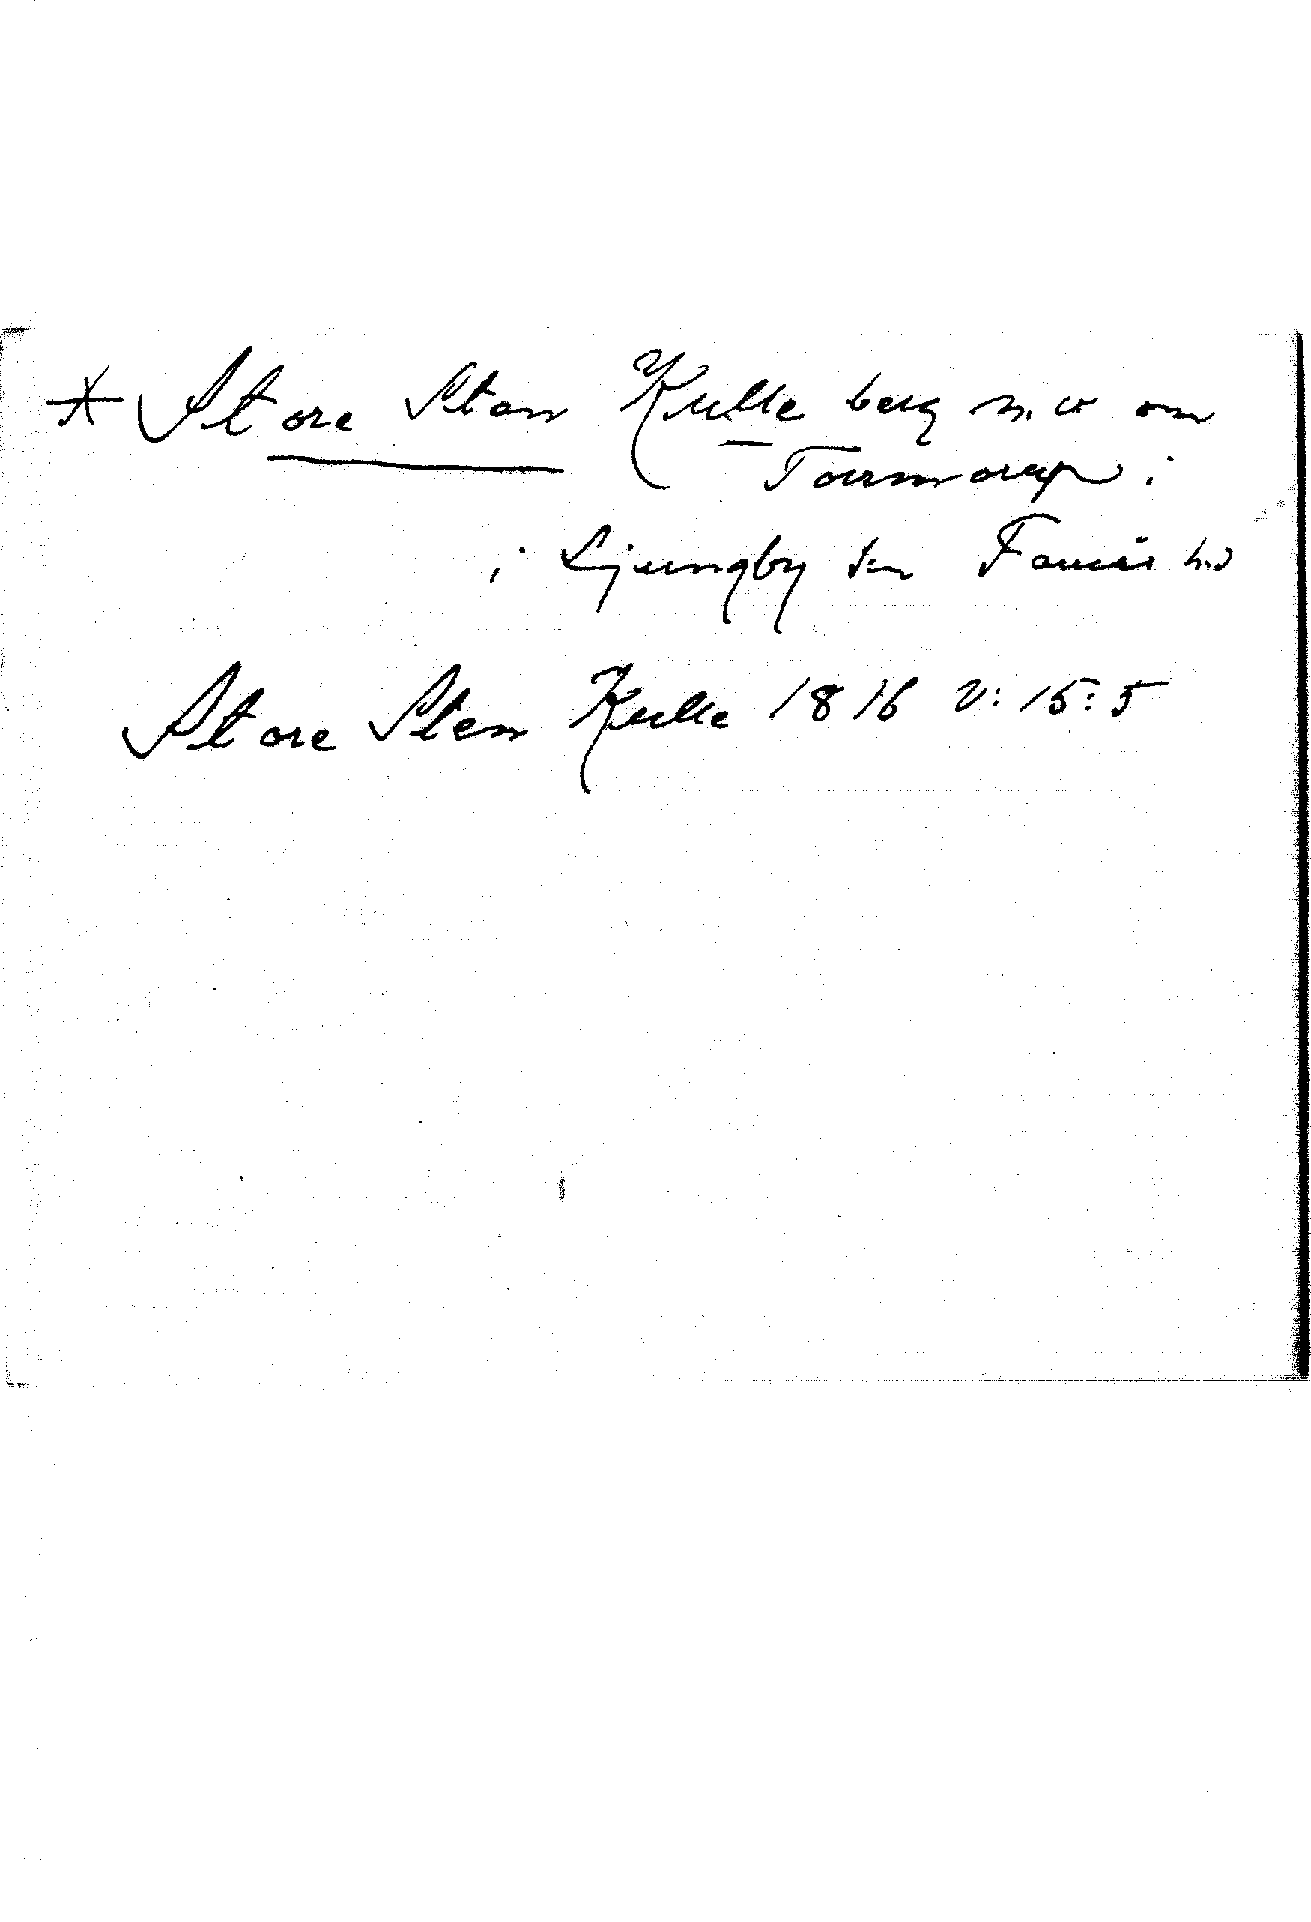 * Store Sten Kulle berg n.v om
Tormorup i
i Ljungby sn Faurås hd
Store Sten Kulle 1816 V: 15: 5